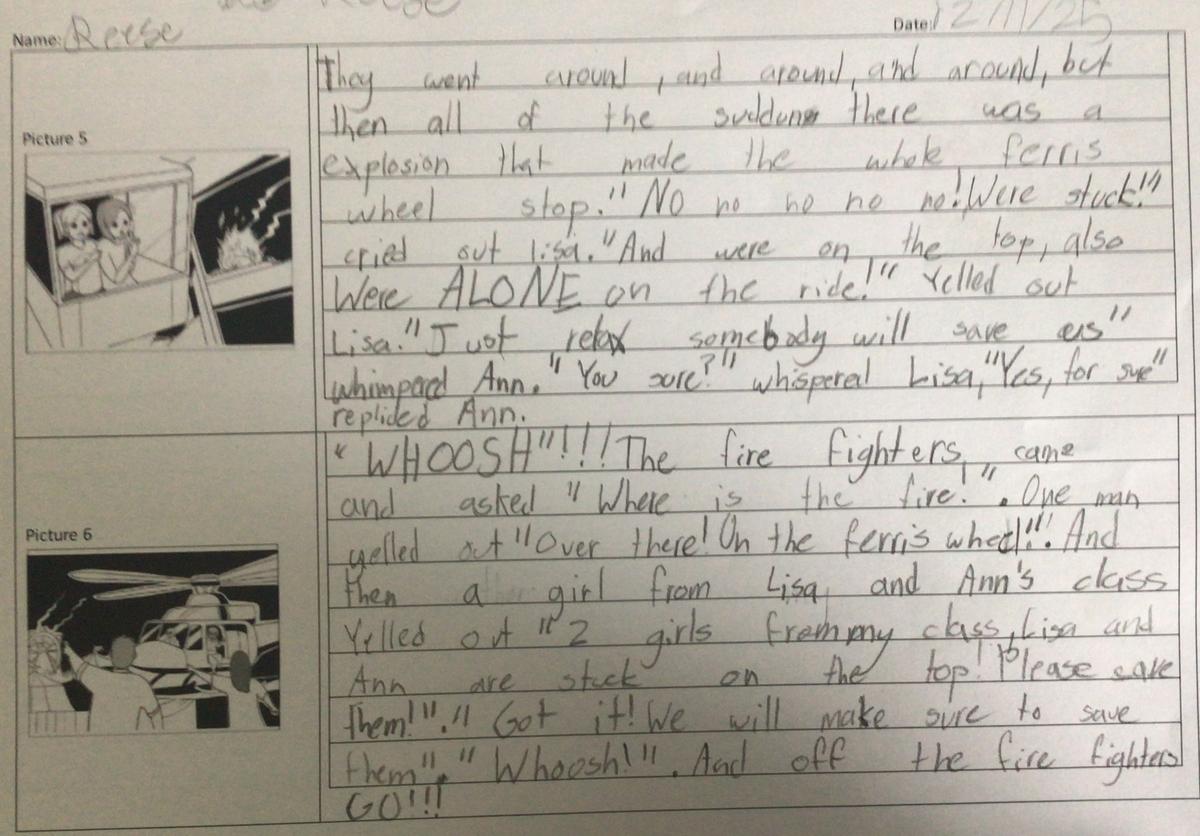 Name: Reese
Date: 12/11/25
They went around, and around, and around, but
then all of the suddune there was a
Picture 5
explosion that made the whole ferris
wheel stop." No no no no no! Were stuck!"
cried out lisa. "And were on the top, also
Were ALONE on the ride!" Yelled out
Lisa." Just relax somebody will save us"
whimpered Ann. "You sure?" whispered Lisa, "Yes, for sure"
replided Ann.
"WHOOSH"!!! The fire fighters, came
and asked "Where is the fire!". One man
Picture 6
yelled out "Over there! On the ferris wheel!". And
then a girl from Lisa, and Ann's class
Yelled out "2 girls from my class, Lisa and
Ann are stuck on the top! Please save
them!"." Got it! We will make sure to save
them"." Whoosh!". And off the fire fighters
GO!!!